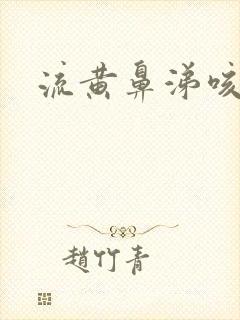 流黄鼻涕咳
趙竹青